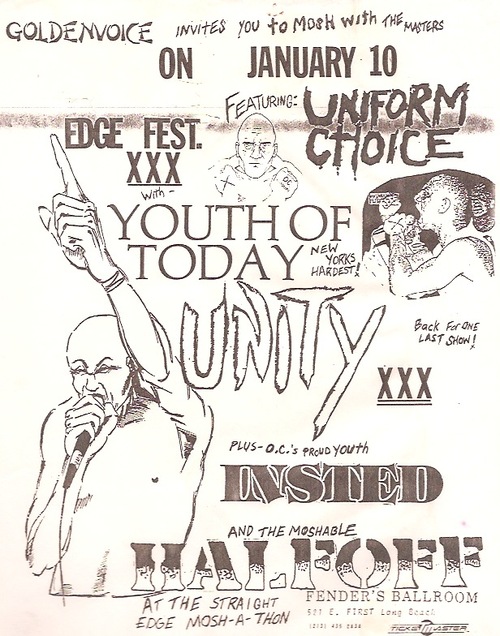 GOLDENVOICE INVITES YOU to MOSH with THE MASTERS
ON JANUARY 10
FEATURING: UNIFORM CHOICE
EDGE FEST.
XXX
with -
X OC
YOUTH OF TODAY
NEW YORKS HARDEST!
UNITY
Back FOR ONE LAST SHOW!
XXX
PLUS - O.C.'s PROUD YOUTH
INSTED
AND THE MOSHABLE
HALF OFF
AT THE STRAIGHT EDGE MOSH-A-THON
FENDER'S BALLROOM
521 E. FIRST Long Beach
(213) 435
TICKETMASTER